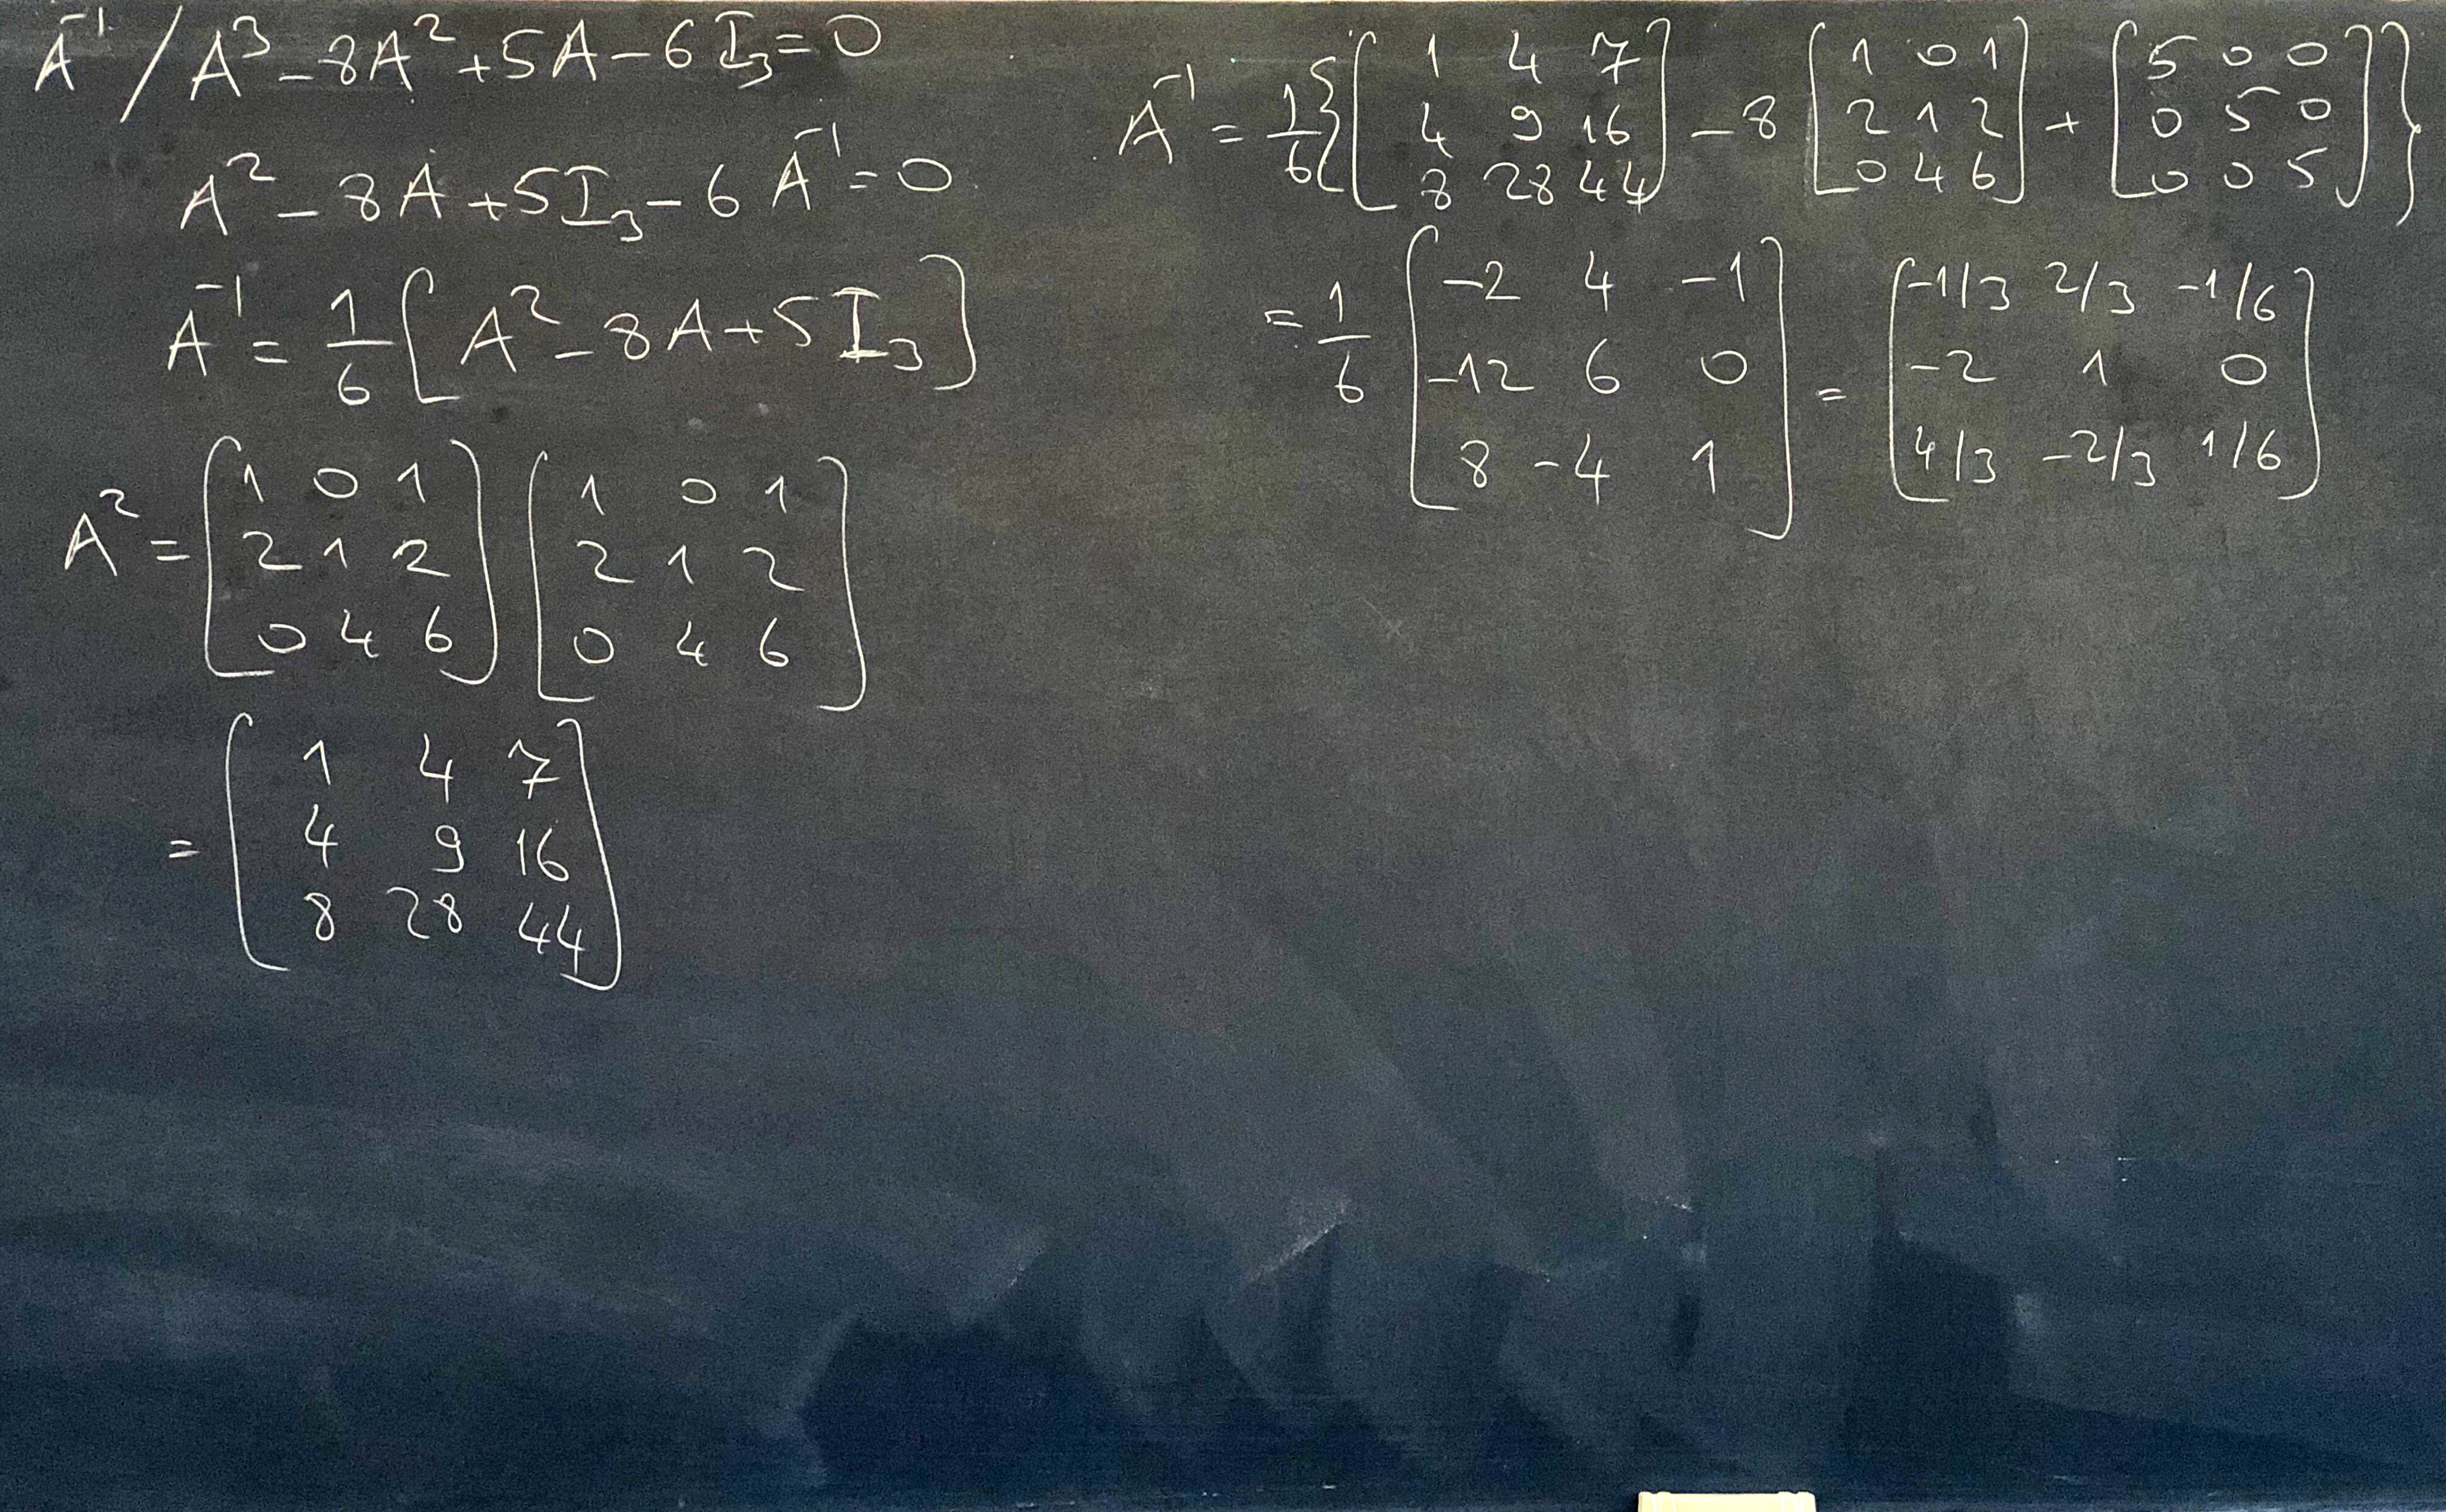 A⁻¹ / A³ - 8A² + 5A - 6I₃ = 0
A² - 8A + 5I₃ - 6A⁻¹ = 0
A⁻¹ = 1/6 [A² - 8A + 5I₃]
A² = [1 0 1; 2 1 2; 0 4 6] [1 0 1; 2 1 2; 0 4 6]
= [1 4 7; 4 9 16; 8 28 44]
A⁻¹ = 1/6 {[1 4 7; 4 9 16; 8 28 44] - 8 [1 0 1; 2 1 2; 0 4 6] + [5 0 0; 0 5 0; 0 0 5]}
= 1/6 [-2 4 -1; -12 6 0; 8 -4 1] = [-1/3 2/3 -1/6; -2 1 0; 4/3 -2/3 1/6]